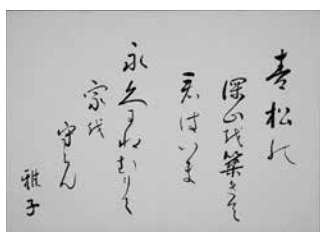 青松の
深山を築きて
君はいま
永久にねむりて
家を
守らん
雅子